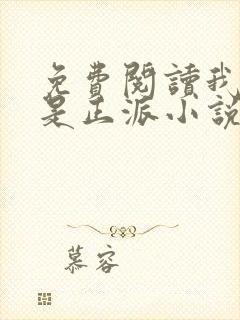 免費閱讀我
是正派小說
慕容